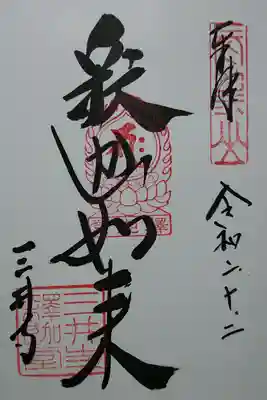 奉拝
令和二.十.二
釈迦如来
三井寺
三井寺
釋迦堂